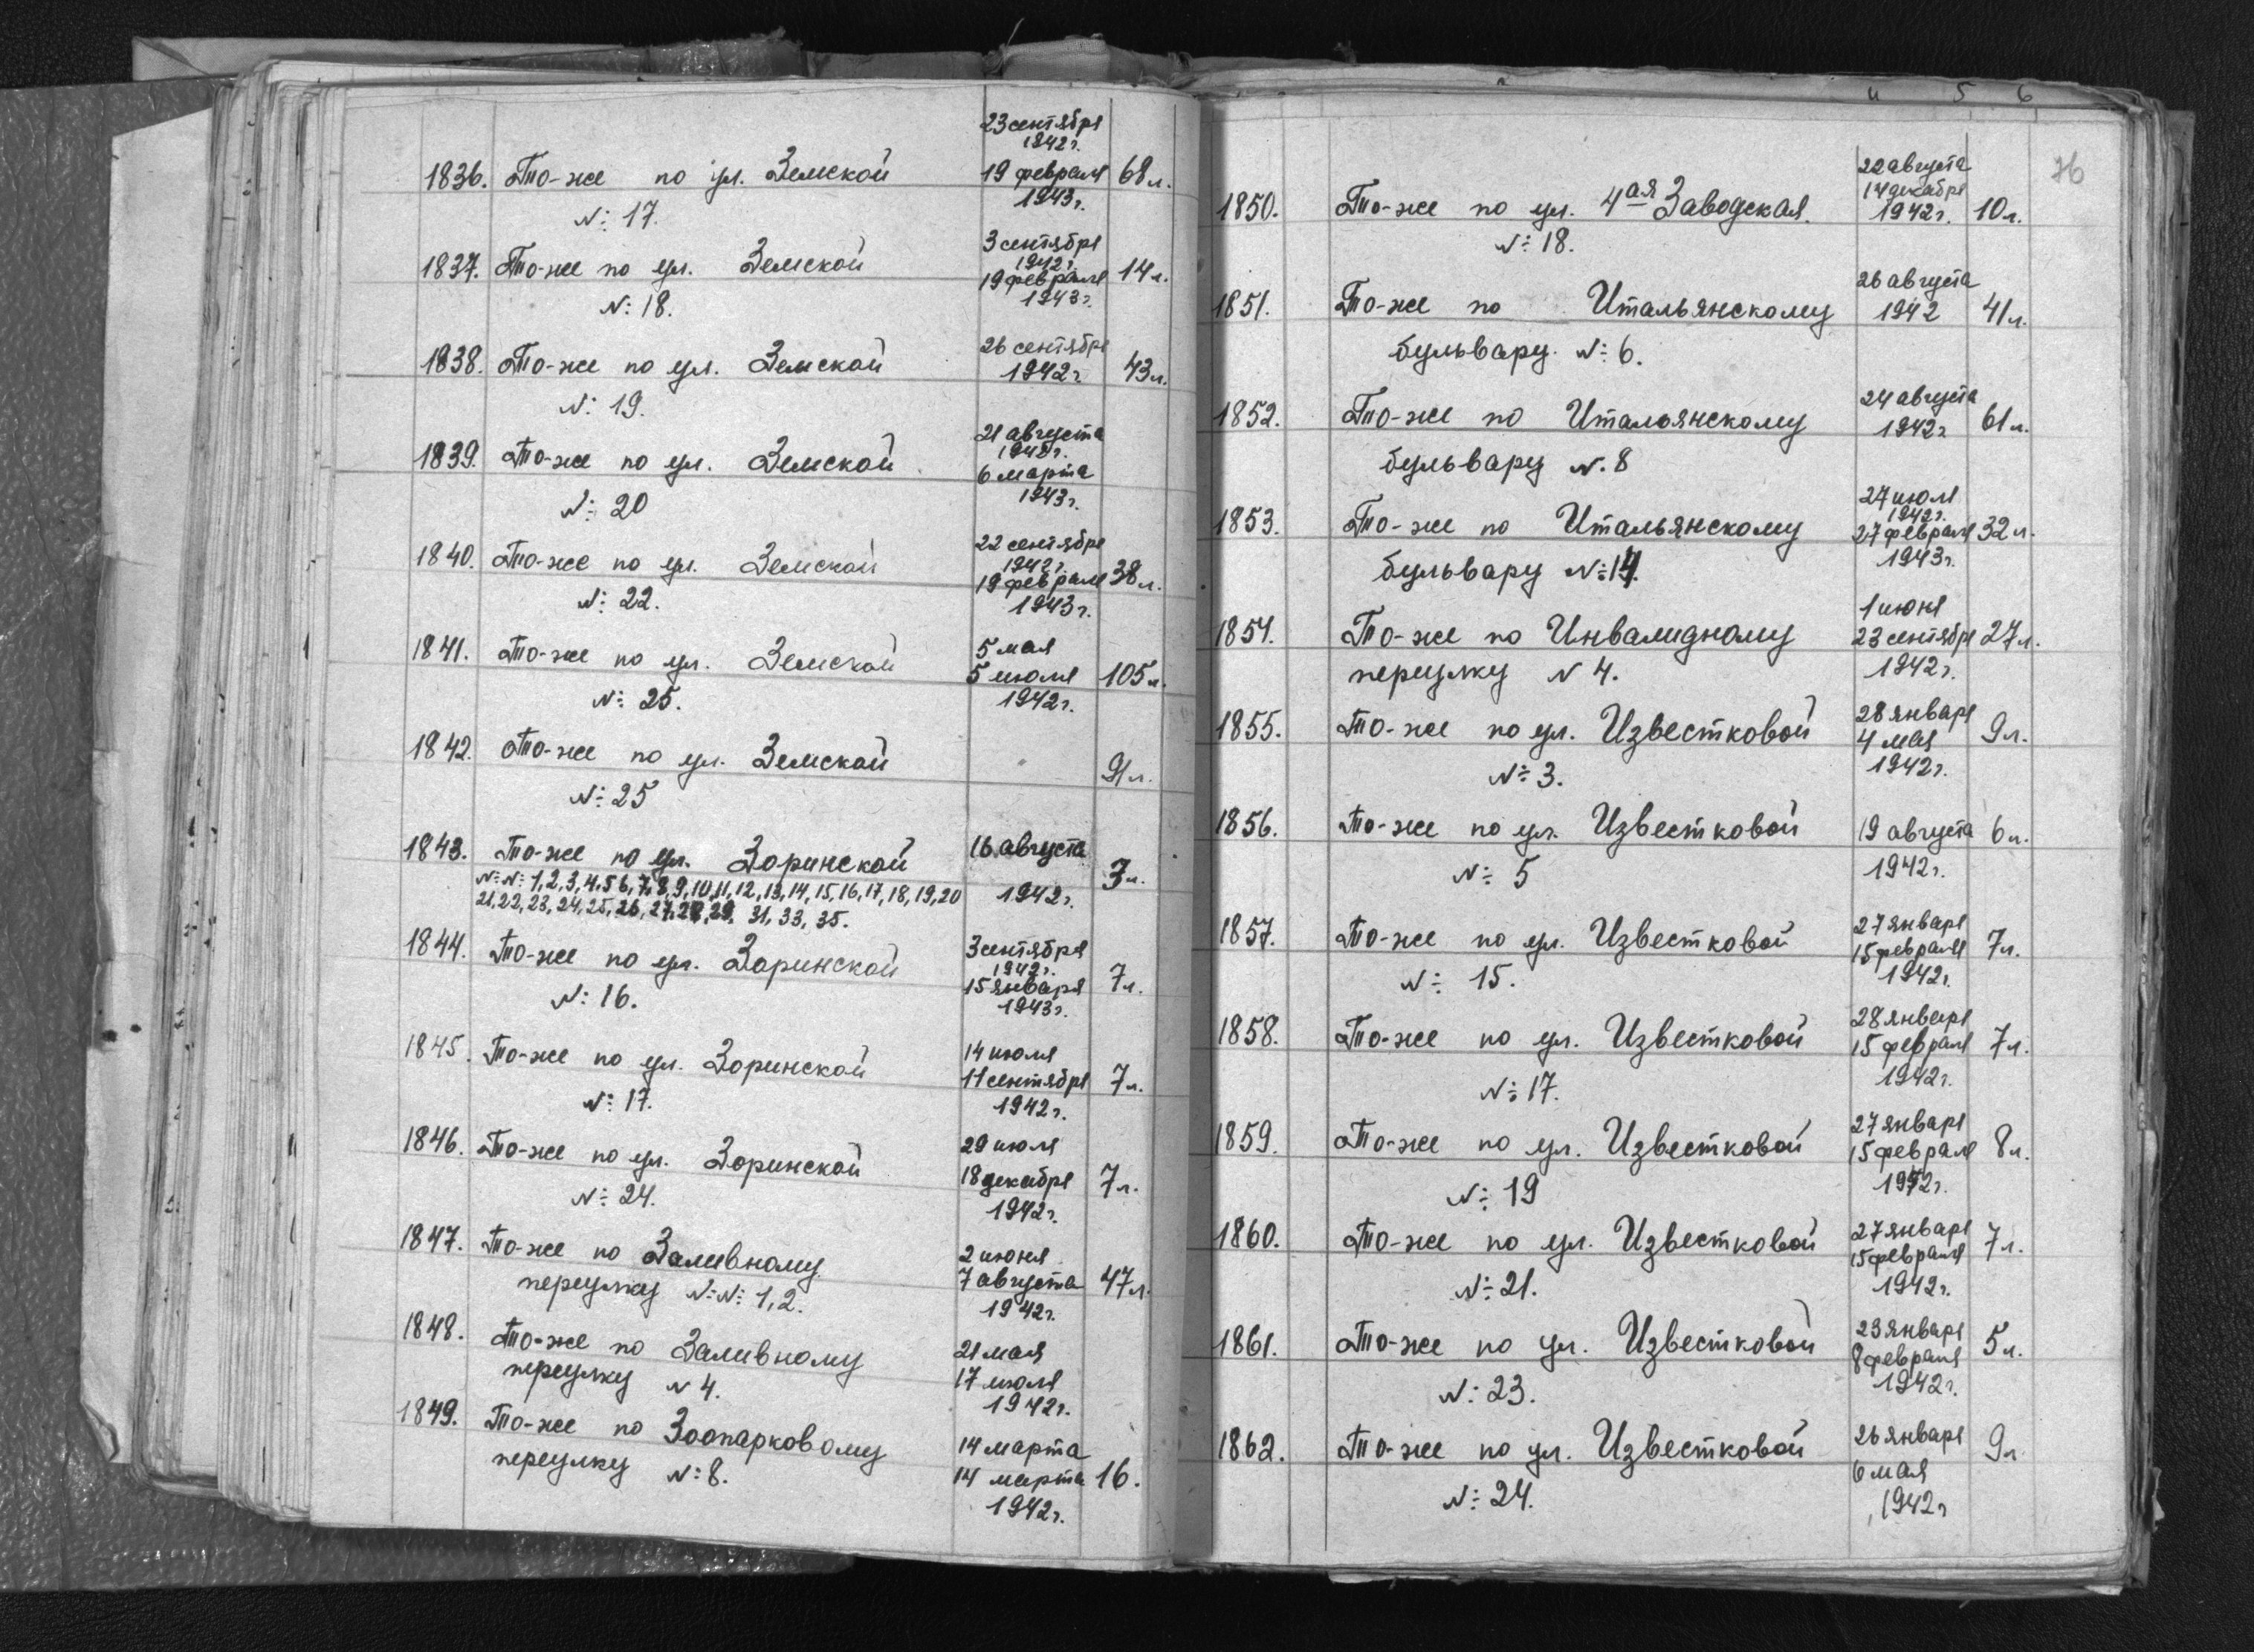 23 сентября
1942 г.
1836. То-же по ул. Земской 19 февраля 68 л.
№ 17. 1943 г.
3 сентября
1942 г.
1837. То-же по ул. Земской 19 февраля 14 л.
№ 18. 1943 г.
26 сентября
1838. То-же по ул. Земской 1942 г. 43 л.
№ 19.
21 августа
1942 г.
1839. То-же по ул. Земской 6 марта
№ 20 1943 г.
22 сентября
1942 г.
1840. То-же по ул. Земской 19 февраля 38 л.
№ 22. 1943 г.
5 мая
1841. То-же по ул. Земской 5 июля 105 л.
№ 25. 1942 г.
1842. То-же по ул. Земской 91 л.
№ 25
1843. То-же по ул. Зоринской 16 августа 3 л.
№№ 1, 2, 3, 4, 5 6, 7, 8, 9, 10, 11, 12, 13, 14, 15, 16, 17, 18, 19, 20 1942 г.
21, 22, 23, 24, 25, 26, 27, 28, 29, 31, 33, 35.
3 сентября
1942 г.
1844. То-же по ул. Зоринской 15 января 7 л.
№ 16. 1943 г.
14 июля
1845. То-же по ул. Зоринской 11 сентября 7 л.
№ 17. 1942 г.
29 июля
1846. То-же по ул. Зоринской 18 декабря 7 л.
№ 24. 1942 г.
1847. То-же по Заливному 2 июня
переулку №№ 1, 2. 7 августа 47 л.
1942 г.
1848. То-же по Заливному 21 мая
переулку № 4. 17 июля
1942 г.
1849. То-же по Зоопарковому 14 марта
переулку № 8. 14 марта 16.
1942 г.
4 5 6
76
22 августа
14 декабря
1850. То-же по ул. 4ая Заводская. 1942 г. 10 л.
№ 18.
26 августа
1851. То-же по Итальянскому 1942 41 л.
бульвару № 6.
24 августа
1852. То-же по Итальянскому 1942 г. 61 л.
бульвару № 8
27 июля
1942 г.
1853. То-же по Итальянскому 27 февраля 32 л.
бульвару № 14. 1943 г.
1 июня
1854. То-же по Инвалидному 23 сентября 27 л.
переулку № 4. 1942 г.
28 января
1855. То-же по ул. Известковой 4 мая 9 л.
№ 3. 1942 г.
1856. То-же по ул. Известковой 19 августа 6 л.
№ 5 1942 г.
27 января
1857. То-же по ул. Известковой 15 февраля 7 л.
№ 15. 1942 г.
28 января
1858. То-же по ул. Известковой 15 февраля 7 л.
№ 17. 1942 г.
27 января
1859. То-же по ул. Известковой 15 февраля 8 л.
№ 19 1942 г.
27 января
1860. То-же по ул. Известковой 15 февраля 7 л.
№ 21. 1942 г.
23 января
1861. То-же по ул. Известковой 8 февраля 5 л.
№ 23. 1942 г.
26 января
1862. То-же по ул. Известковой 6 мая 9 л
№ 24. 1942 г